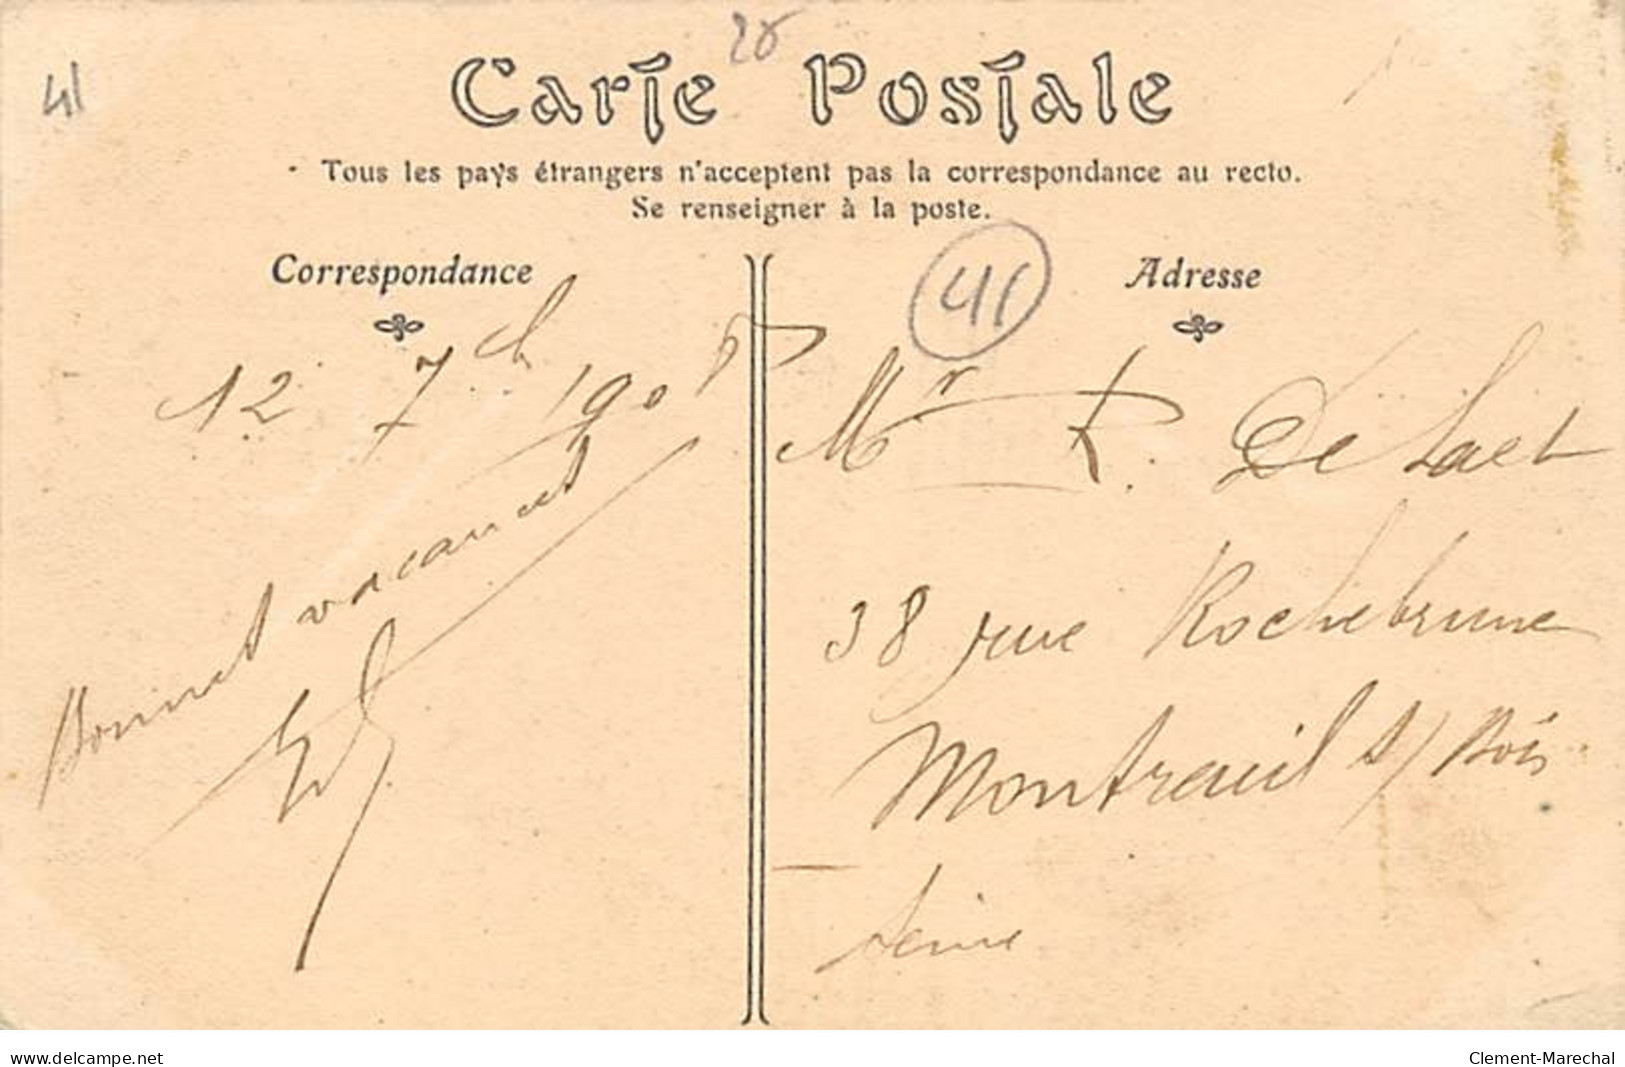 41
28
Carte Postale
Tous les pays étrangers n'acceptent pas la correspondance au recto.
Se renseigner à la poste.
Correspondance
12 7bre 1905
Bonnes vacances
41
Adresse
Mr R. De Laet
38 rue Rochebrune
Montreuil s/ Bois
Seine
www.delcampe.net
Clement-Marechal